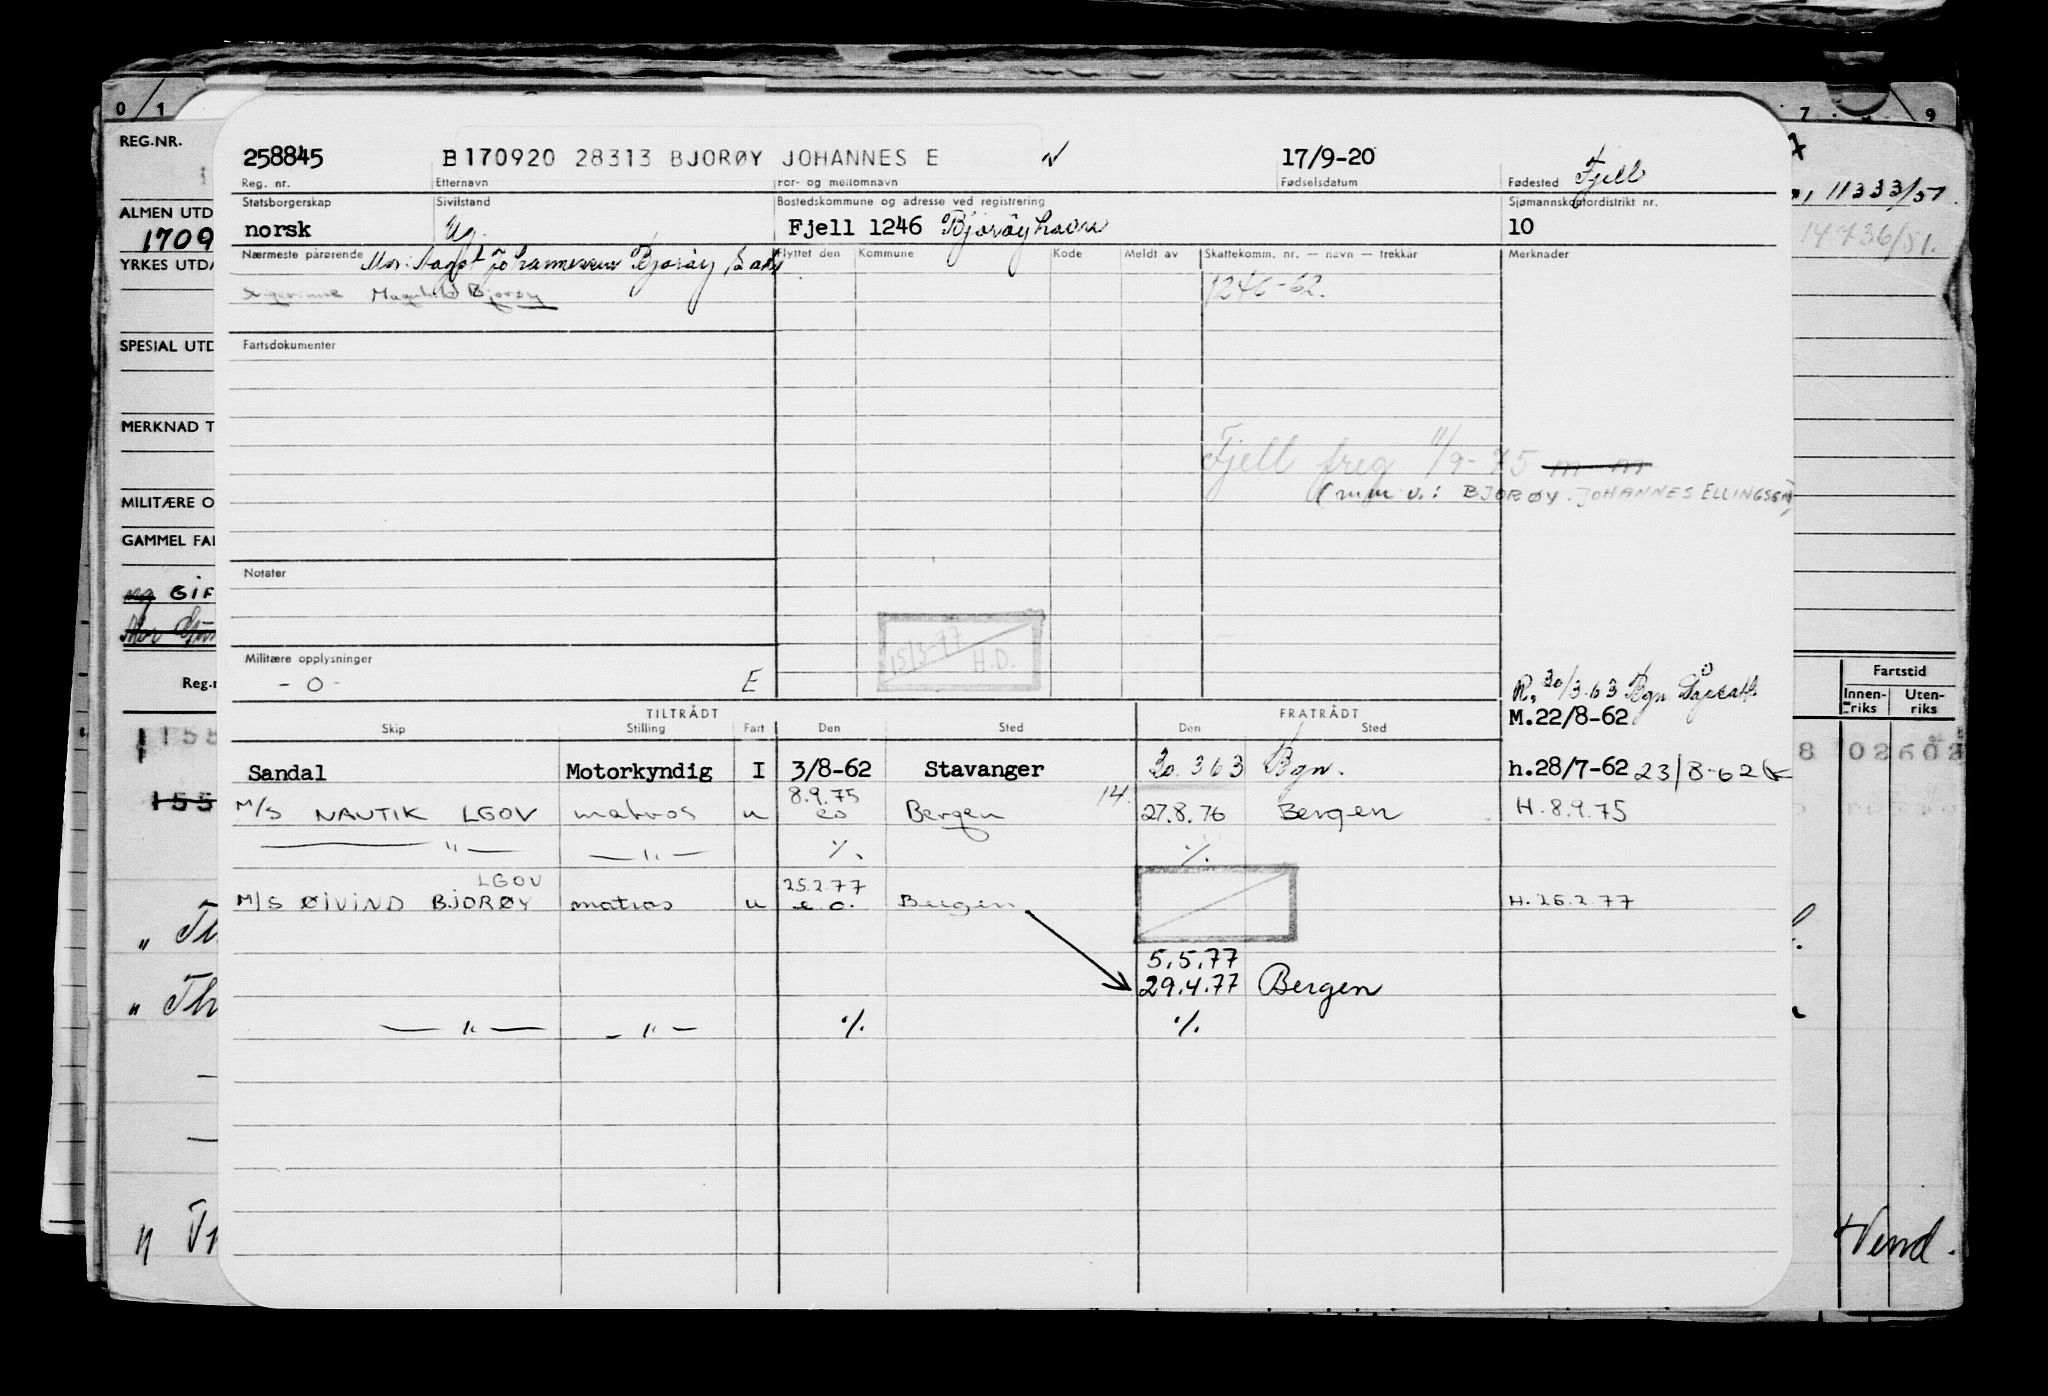 0 / 1 7 9
REG.NR.
258845 B 170920 28313 BJORØY JOHANNES E 17/9-20 Fjell
Reg. nr. Etternavn For- og mellomnavn Fødselsdatum Fødested
11333/51.
ALMEN UTD
Statsborgerskap Sivilstand Bostedskommune og adresse ved registrering Sjømannskontordistrikt nr.
1709 norsk Ug. Fjell 1246 Bjorøyhavn 10
14736/51.
YRKES UTDA
Nærmeste pårørende Mor: Johannessen Bjorøy Flyttet den Kommune Kode Meldt av Skattekomm. nr. — navn — trekkår Merknader
Bjorøy 1246-62.
SPESIAL UTD
Fartsdokumenter
MERKNAD T
Fjell freg 11/9-75
(mm v.: BJORØY JOHANNES ELLINGSEN)
MILITÆRE O
GAMMEL FA
Notater
ug GIF
15/3-77 H.D.
Militære opplysninger
- 0 - E
Reg.n
R. 30/3.63 Bgn
Fartstid
TILTRÅDT FRATRÅDT M.22/8-62
Innen-riks Uten-riks
Skip Stilling Fart Den Sted Den Sted
155 8 02602
Sandal Motorkyndig I 3/8-62 Stavanger 30.3 63 Bgn. h.28/7-62 23/8-62
155
8.9.75 14.
M/S NAUTIK LGOV matros u eo Bergen 27.8.76 Bergen H.8.9.75
— " — — " — ·/. ·/.
LGOV 25.2.77
M/S ØIVIND BJORØY matros u e.o. Bergen H.25.2 77
5.5.77
29.4.77 Bergen
" Th
— " — — " — ·/. ·/.
Vend.